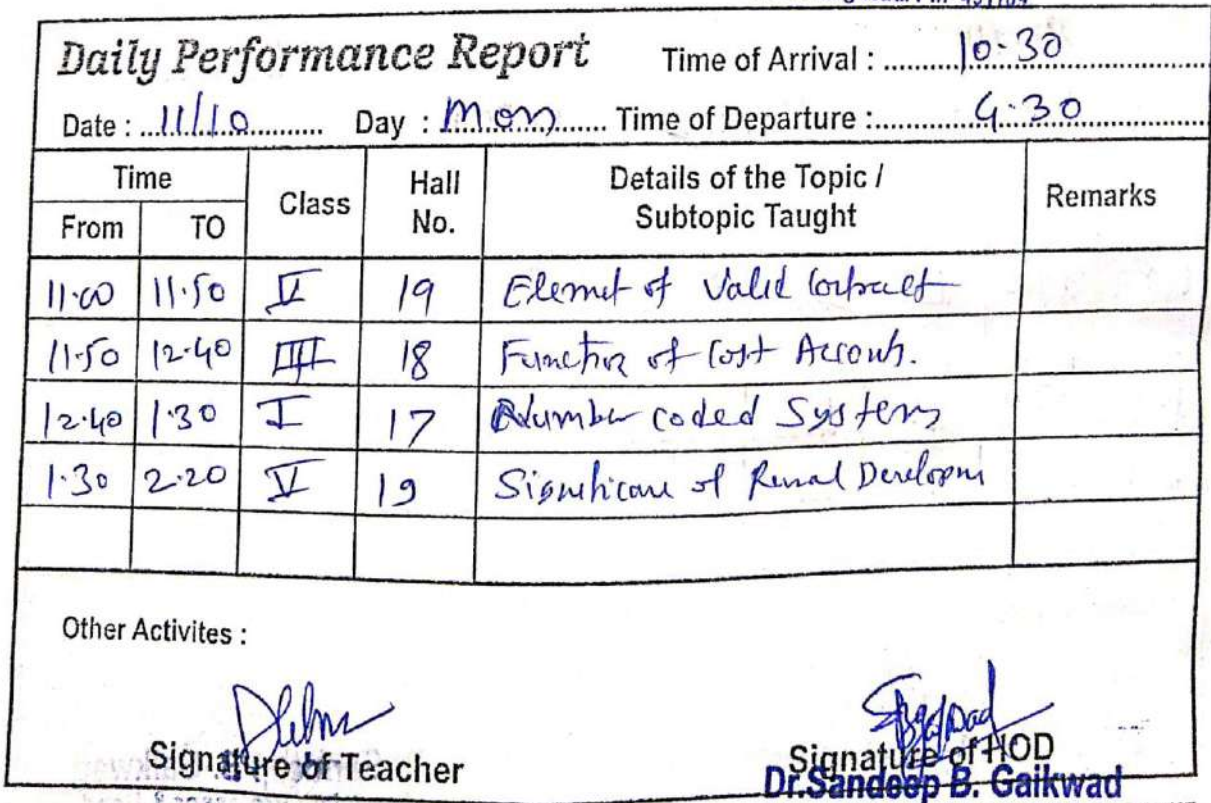 Daily Performance Report Time of Arrival : 10.30
Date : 11/10 Day : Mon Time of Departure : 4.30
Time Class Hall No. Details of the Topic / Subtopic Taught Remarks
From TO
11.00 11.50 V 19 Elemet of Valid Contract
11.50 12.40 III 18 Function of Cost Accouts.
12.40 1.30 I 17 Number coded System
1.30 2.20 V 19 Significane of Rural Developm
Other Activites :
Signature of Teacher Signature of HOD
Dr.Sandeep B. Gaikwad